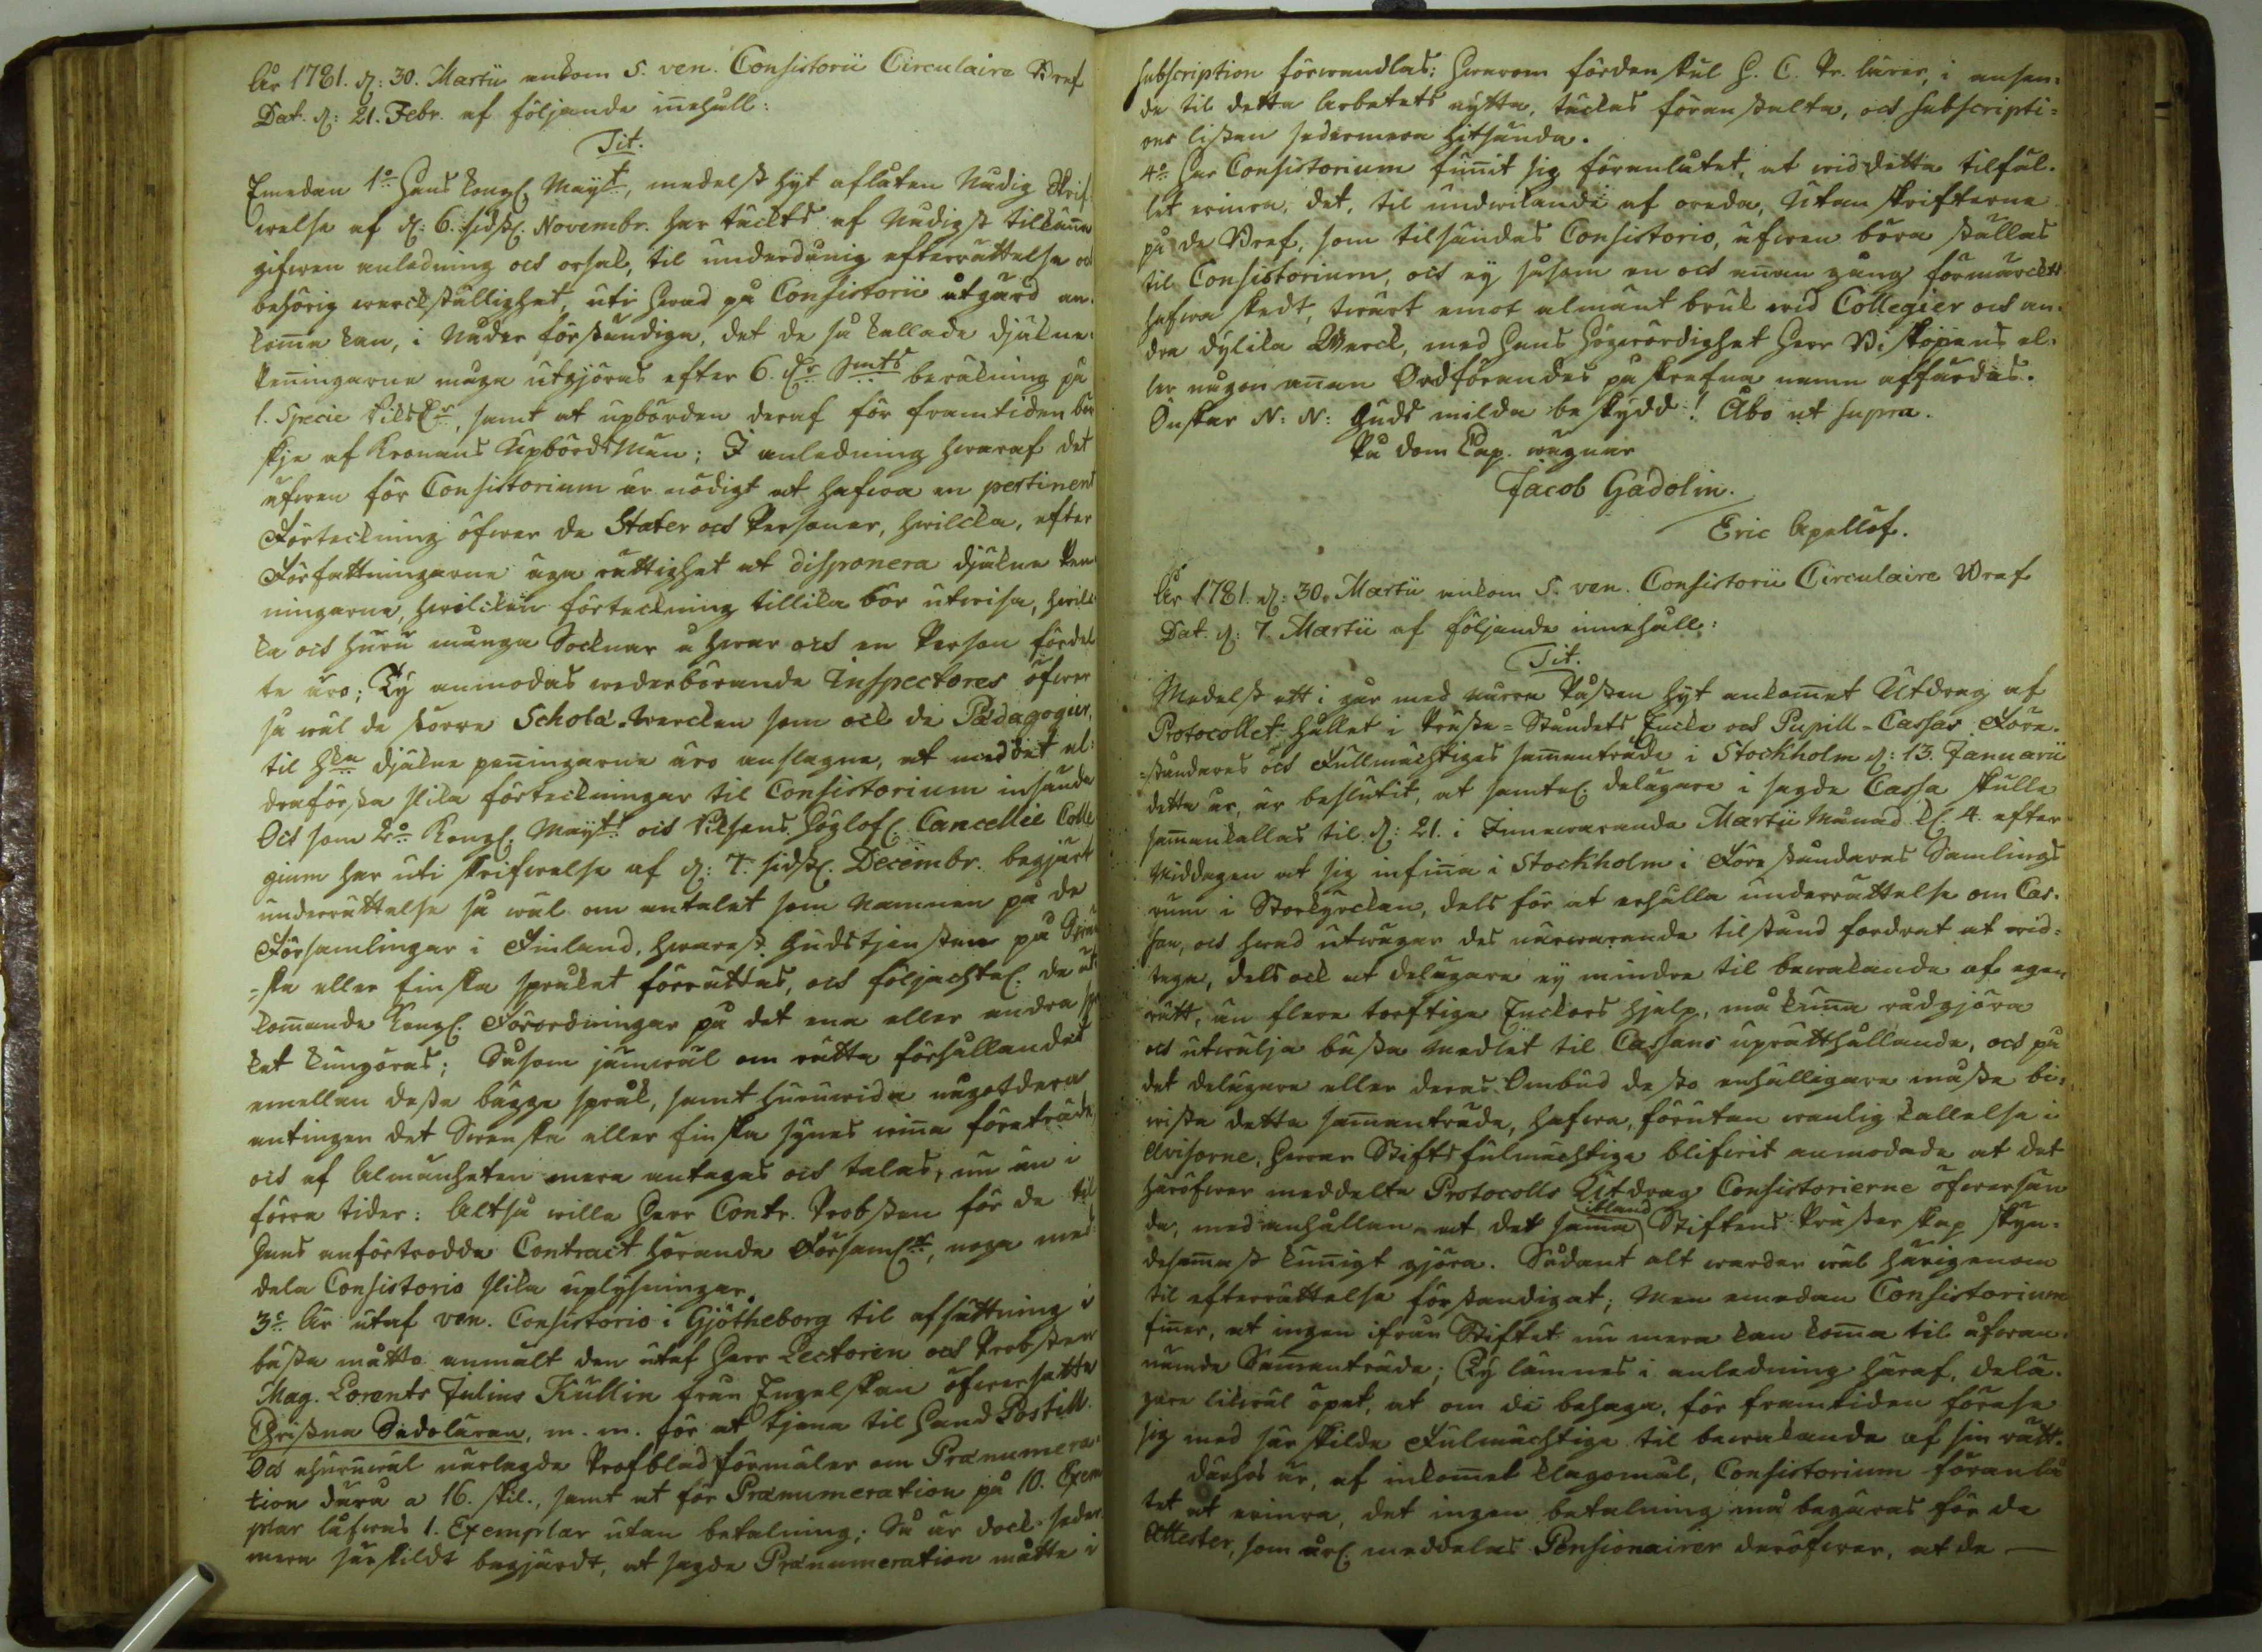 År 1781. d: 30. Martii ankom S. ven. Consistorii Circulaire Bref
Dat. d: 21. Febr. af följande inehåll:
Tit.
Emedan 1o Hans Kongl. Mayt, medelst hyt aflåten Nådig Skrif
welse af d: 6. sidstl. Novembr. har täckts af Nådigst tilkänna
gifwen anledning och orsak, til underdånig efterrättelse och
behörig werckställighet, uti hwad på Consistorii åtgärd an-
komma kan, i Nåder förständiga, det de så kallade djäkne-
peningarne måga utgjöras efter 6. dr Smts beräkning på
1. Specie Riksdr, samt at upbörden deraf för framtiden bör
skje af Kronans UpbördsMän; I anledning hwaraf det
äfwen för Consistorium är nödigt at hafwa en pertinent
Förteckning öfwer de Stater och Personer, hwilcka, efter
Författningarne äga rättighet at disponera djäkne Pen
ningarne, hwilcken förteckning tillika bör utwisa, hwil
ka och huru många Socknar å hwar och en Person fördel
te äro; Ty anmodas wederbörande Inspectores öfwer
så wäl de större Schola-wercken som ock de Pædagogier,
til hka djäkne peningarne äro anslagne, at med det al-
draförsta slika förteckningar til Consistorium insända
Och som 2o Kongl. Mayts och Riksens Höglofl. Cancellie Colle
gium har uti skrifwelse af d: 7. sidstl. Decembr. begjärt
underrättelse så wäl om antalet som Namnen på de
Församlingar i Finland, hwarest Gudstjensten på Swen
-ska eller finska språket förrättas, och följachtel. de ut
kommande Kongl. Förordningar på det ena eller andra språ
ket kungöras; Såsom jämwäl om rätta förhållandet
emellan dessa bägge språk, samt huruwida någotdera
antingen det Swenska eller finska synes winna företräde
och af Almänheten mera antagas och talas, nu än i
förra tider: Altså wille Herr Contr. Probsten för de til
Hans anförtrodde Contract hörande Församlr, noga med
dela Consistorio slika uplysningar.
3o Är utaf ven. Consistorio i Gjötheborg til afsättning i
bästa måtto anmält den utaf Herr Lectoren och Probsten
Mag. Lorents Julius Kullin från Engelskan öfwersatte
Christna Sedoläran, m. m. för at tjena til Hand Postill.
Och ehuruwäl närlagde Profblad förmäler om Prænumera-
tion dera a 16. skil., samt at för Prænumeration på 10. Exem
plar låfwas 1. Exemplar utan betalning; Så är dock seder
mera särskildt begjärdt, at sagde Prænumeration måtte i
subscription förwandlas; hwarom fördenskul H. C. Pr. lärer, i ansen-
de til detta Arbetets nytta, täckas föranstalta, och subscripti-
ons listan sedermera hitsända.
4o Har Consistorium funnit sig föranlåtet, at wid detta tilfäl-
let erinra, det, til undwikande af oreda, Utanskrifterne
på de Bref, som tilsändas Consistorio, äfwen böra ställas
til Consistorium, och ey såsom en och annan gång förmärckts
hafwa skedt, twärt emot almänt bruk wid Collegier och an-
dra dylika Werck, med Hans Högwördighet Herr Biskopens el-
ler någon annan Ordförandes påskrefna namn affärdas.
Önskar N: N: Guds milda beskydd! Åbo ut supra.
På dom Cap. wägnar
Jacob Gadolin.
Eric Apellöf.
År 1781. d: 30. Martii ankom S. ven. Consistorii Circulaire Bref
Dat. d: 7. Martii af följande innehåll:
Tit.
Medelst ett i går med norra Påsten hyt ankommet Utdrag af
Protocollet hållet i Präste-Ståndets Encke och Pupill-Cassas Före-
-ståndares och Fullmächtiges sammanträde i Stockholm d: 13. Januarii
detta år, är beslutit, at samtel. delägare i sagde Cassa skulle
sammankallas til d: 21. i Innewarande Martii Månad Kl. 4. efter
Middagen at sig infinna i Stockholm i Föreståndares Samlings
rum i Storkyrckan, dels för at erhålla underrättelse om Cas-
san, och hwad utwägar des närwarande tilstånd fordrat at wid-
taga, dels ock at delägare ey mindre til bewakande af egen
rätt, än flere torftiga Enckors hjelp, må kunna rådgjöra
och utwälja bästa Medlet til Cassans uprätthållande, och på
det delägare eller deras Ombud desto enhälligare måtte bi-
wista detta sammanträde, hafwa, förutan wanlig kallelse i
Avisorne, herrar Stiftsfulmächtige blifwit anmodade at det
häröfwer meddelte Protocolls Utdrag Consistorierne öfwersän
da, med anhållan at det samma ibland Stiftens Prästerskap skyn-
desammast kunnigt gjöra. Sådant alt warder wäl härigenom
til efterrättelse förstendigat; Men emedan Consistorium
finner, at ingen ifrån Stiftet nu mera kan komma til åfwan-
nämde Sammanträde; Ty lämnes i anledning häraf, delä-
gare likwäl öpet, at om de behaga, för framtiden förese
sig med särskilde Fulmächtige til bewakande af sin rätt.
därhos är, af inkommet klagomål, Consistorium föranlå
tet at erinra, det ingen betalning må begäras för de
Attester, som årl. meddelas Pensionairer deröfwer, at de —